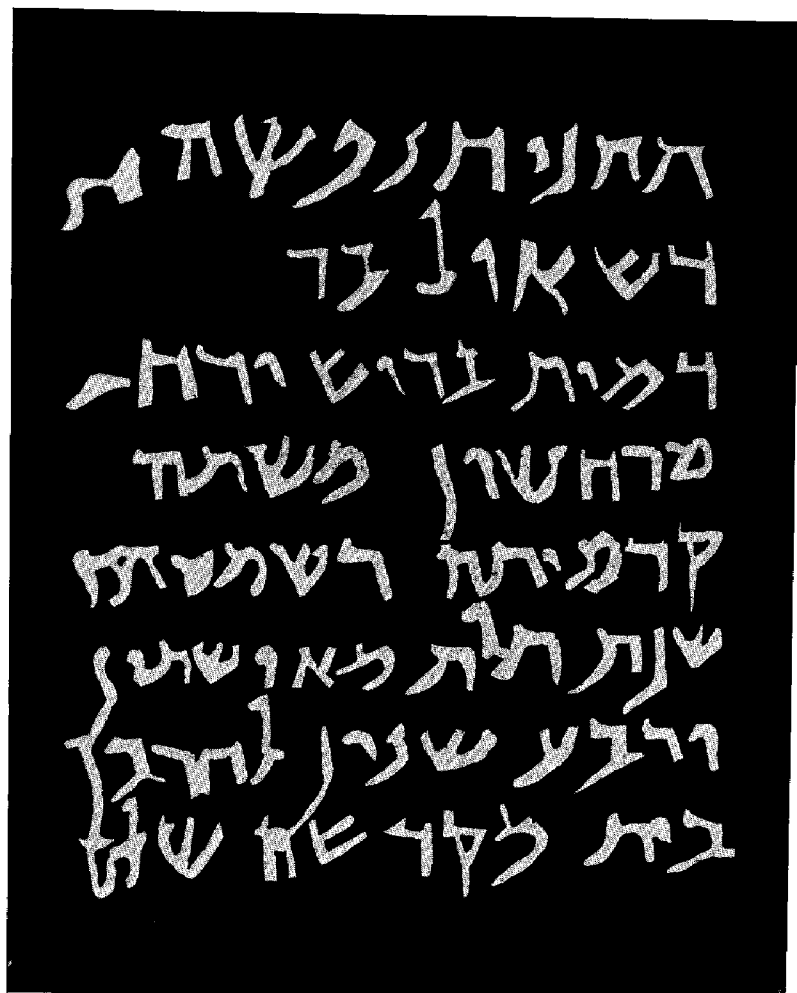 תתניח נפשה
דשאול בר
דמית בריש ירח
מרחשון משתה
קדמיתה דשמטתה
שנת תלת מאושתין
ורבע שנין לחרבן
בית מקדשה שלום